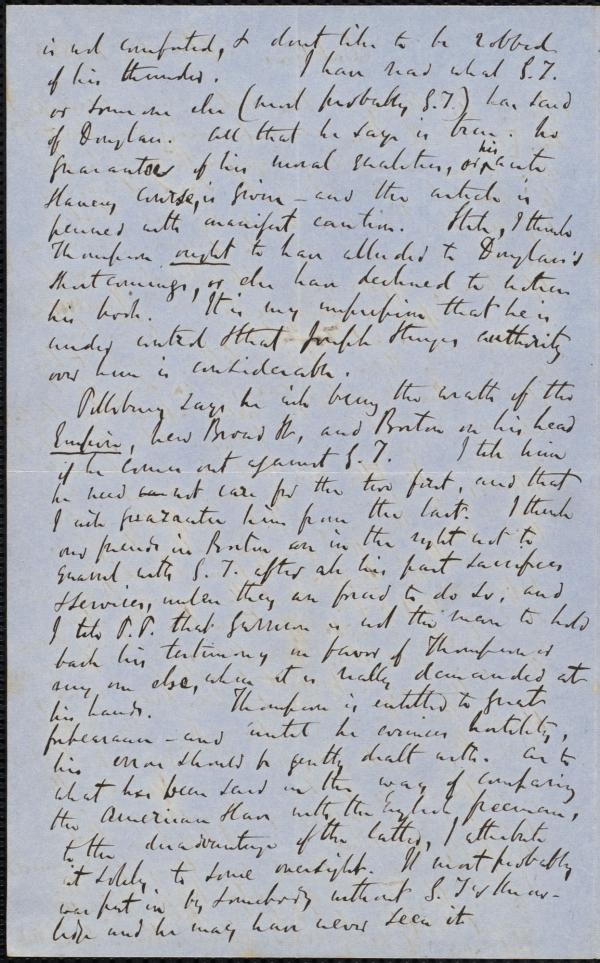 is not comforted, & don't like to be robbed
of his thunder. I have read what G.T.
or some one else (most probably G.T.) has said
of Douglass. All that he says is true. No
guarantee of his moral qualities, or his anti
slavery course, is given — and the article is
penned with manifest caution. Still, I think
Thompson ought to have alluded to Douglass's
shortcomings, or else have declined to notice
his book. It is my impression that he is
under control & that Joseph Sturge's authority
over him is considerable.
Pillsbury says he will bring the wrath of the
Empire, New Broad St, and Boston on his head
if he comes out against G.T. I tell him
he need not care for the two first, and that
I will guarantee him from the last. I think
our friends in Boston are in the right not to
quarrel with G.T. after all his past sacrifices
& services, unless they are forced to do so, and
I tell P.P. that Garrison is not the man to hold
back his testimony in favor of Thompson or
any one else, when it is really demanded at
his hands. Thompson is entitled to great
forbearance — and until he evinces hostility,
his errors should be gently dealt with. As to
what has been said in the way of comparing
the American slave with the English freeman,
to the disadvantage of the latter, I attribute
it solely to some oversight. It most probably
was put in by somebody without G.T's know-
ledge and he may have never seen it